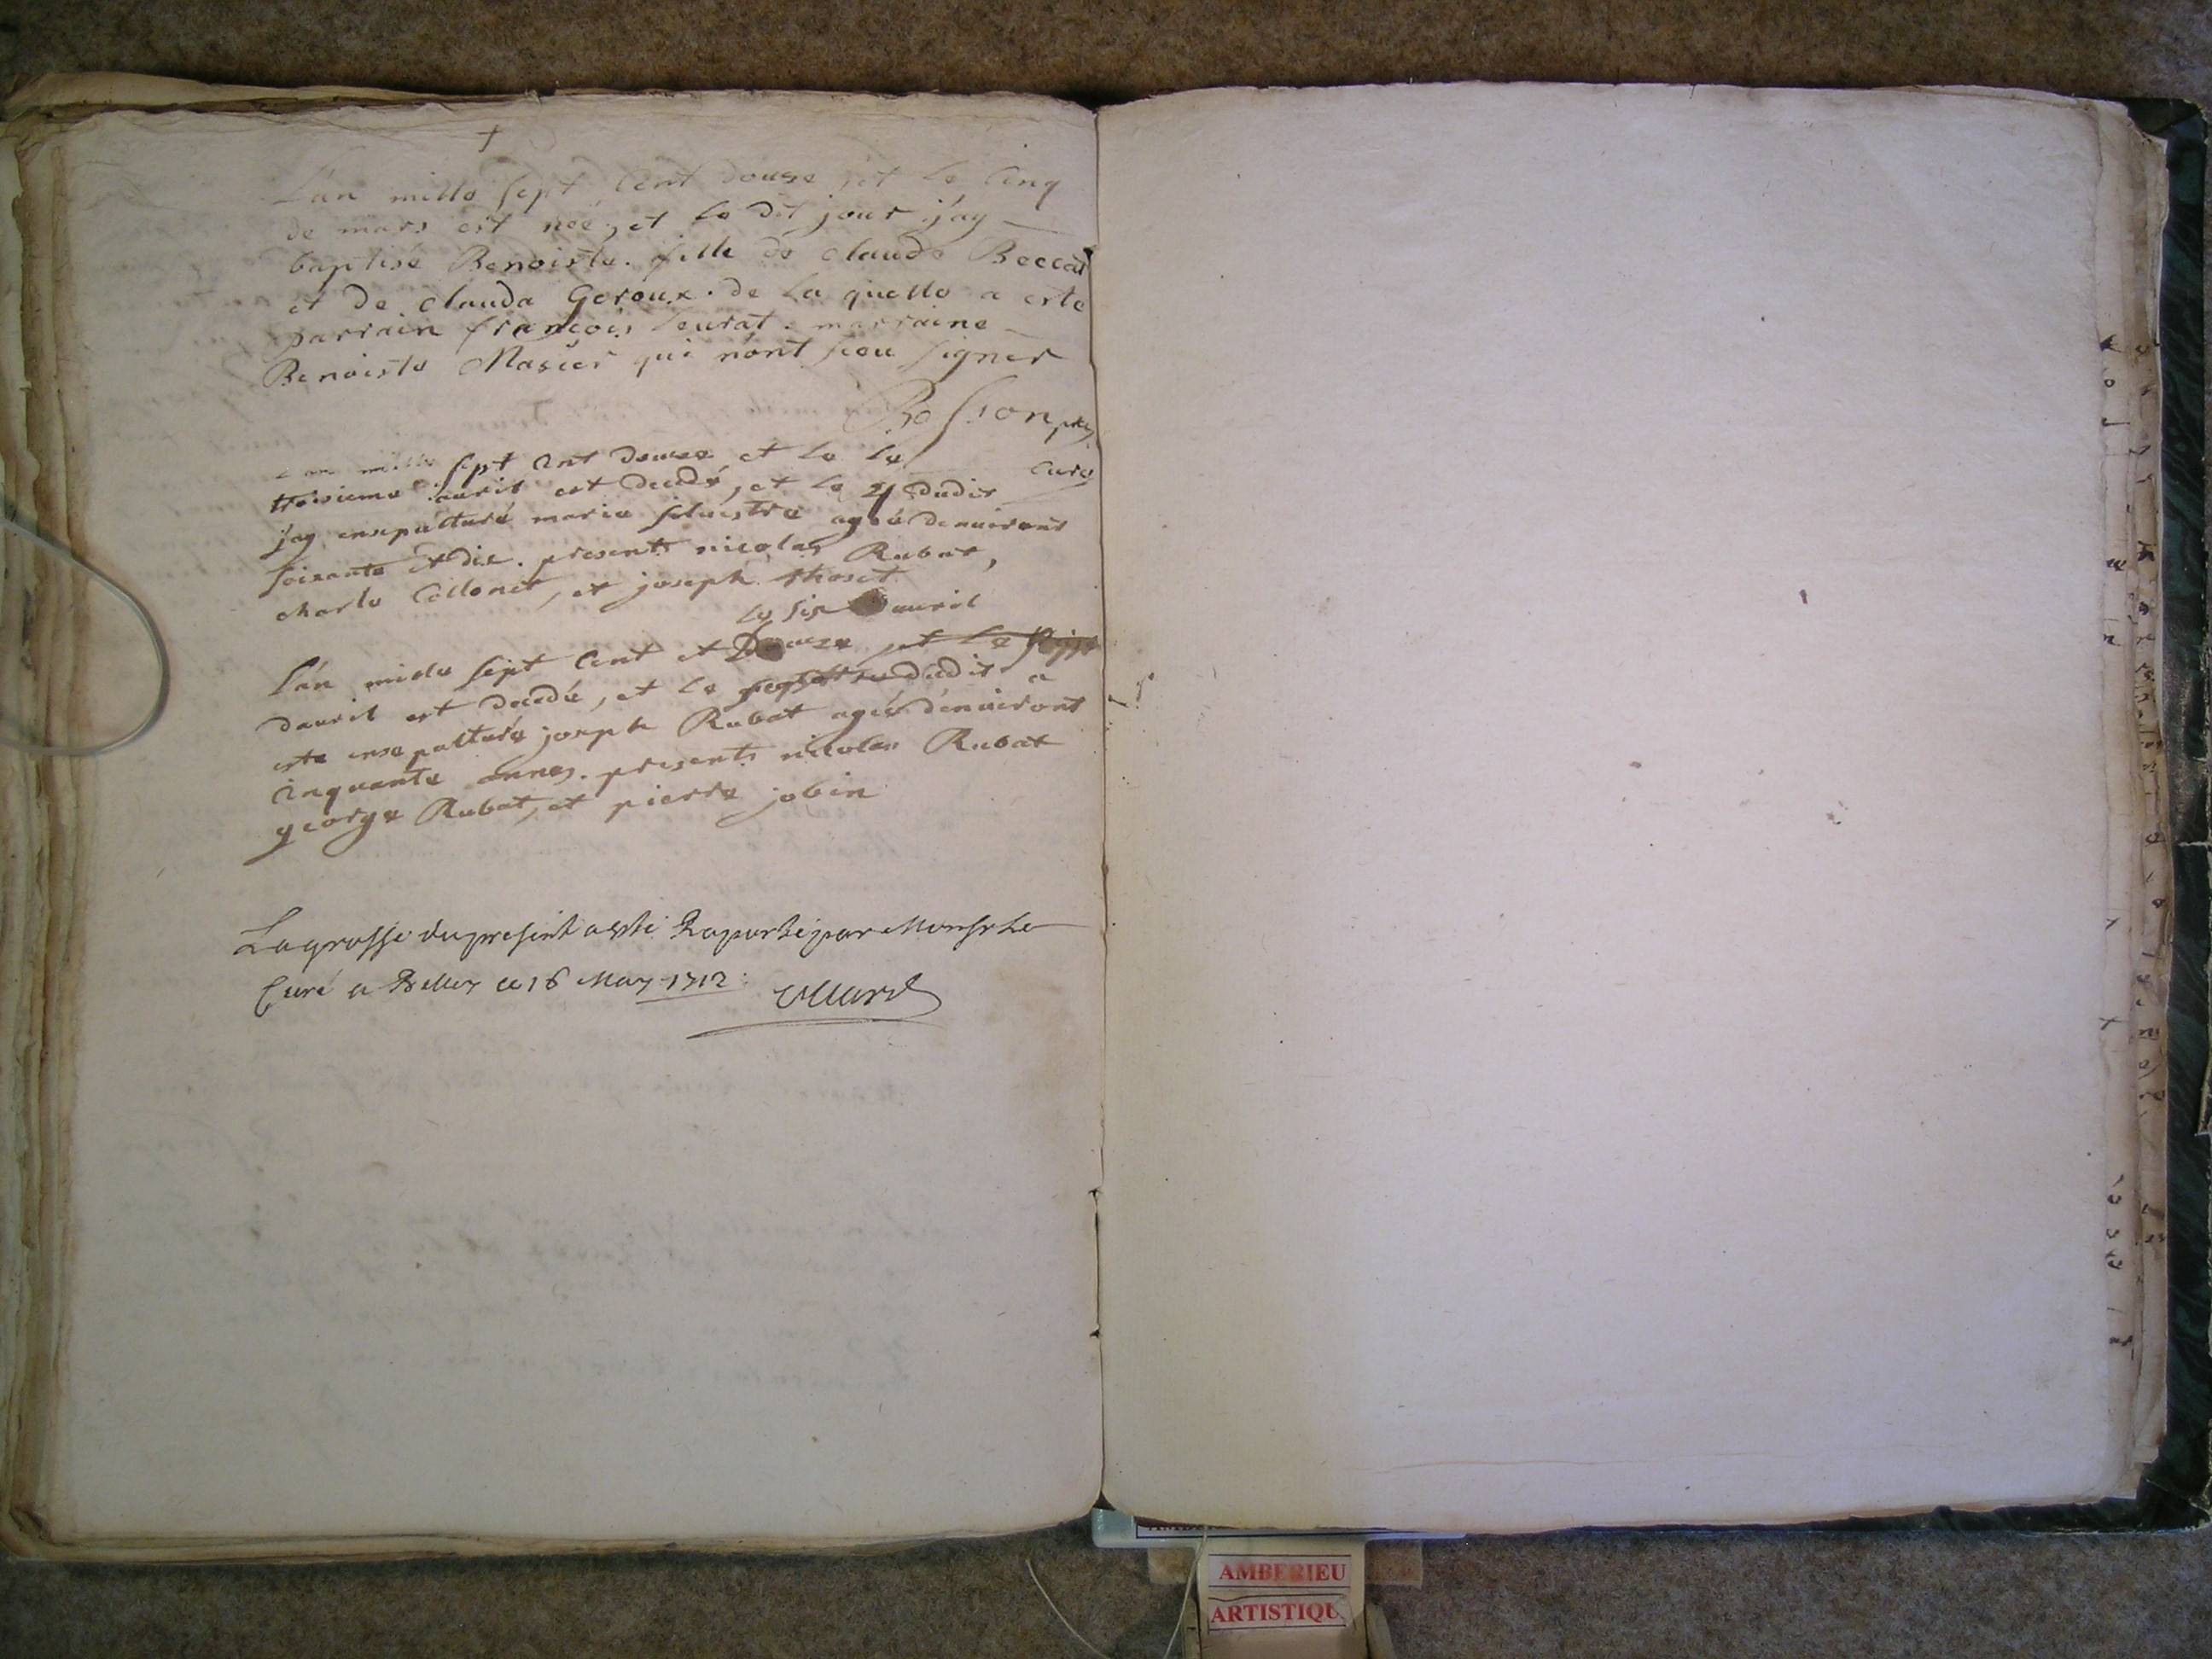 L'an mille sept Cent douze et le Cinq
de mars est née, et le dit jour j'ay
baptisé Benoiste. fille de claude Beccat
et de clauda Geroux. de la quelle a este
parrain françois Leurat. marraine
Benoiste Masier qui n'ont sceu signer
Bession ptre
Curé
L'an mille sept Cent douze et le le
troisieme auril est decedé, et le 4 dudit
j'ay ensepulturé maria siluestre agée denuiront
soixante et dix. presents nicolas Rubat,
charle Collonet, et joseph thoset
le six auril
L'an mille sept Cent et Douze et le
dauril est decedé, et le dudit a
este ensepulturé joseph Rubat agée denuiront
cinquante annes. presents nicolas Rubat
george Rubat, et pierre jobin
La grosse du present a esté Raporté par Monsr le
Curé a Belley ce 16 May 1712:
AMBERIEU
ARTISTIQU